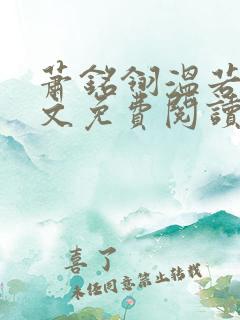 蕭銘翎溫若
文免費閱讀
喜了
未经同意禁止转载